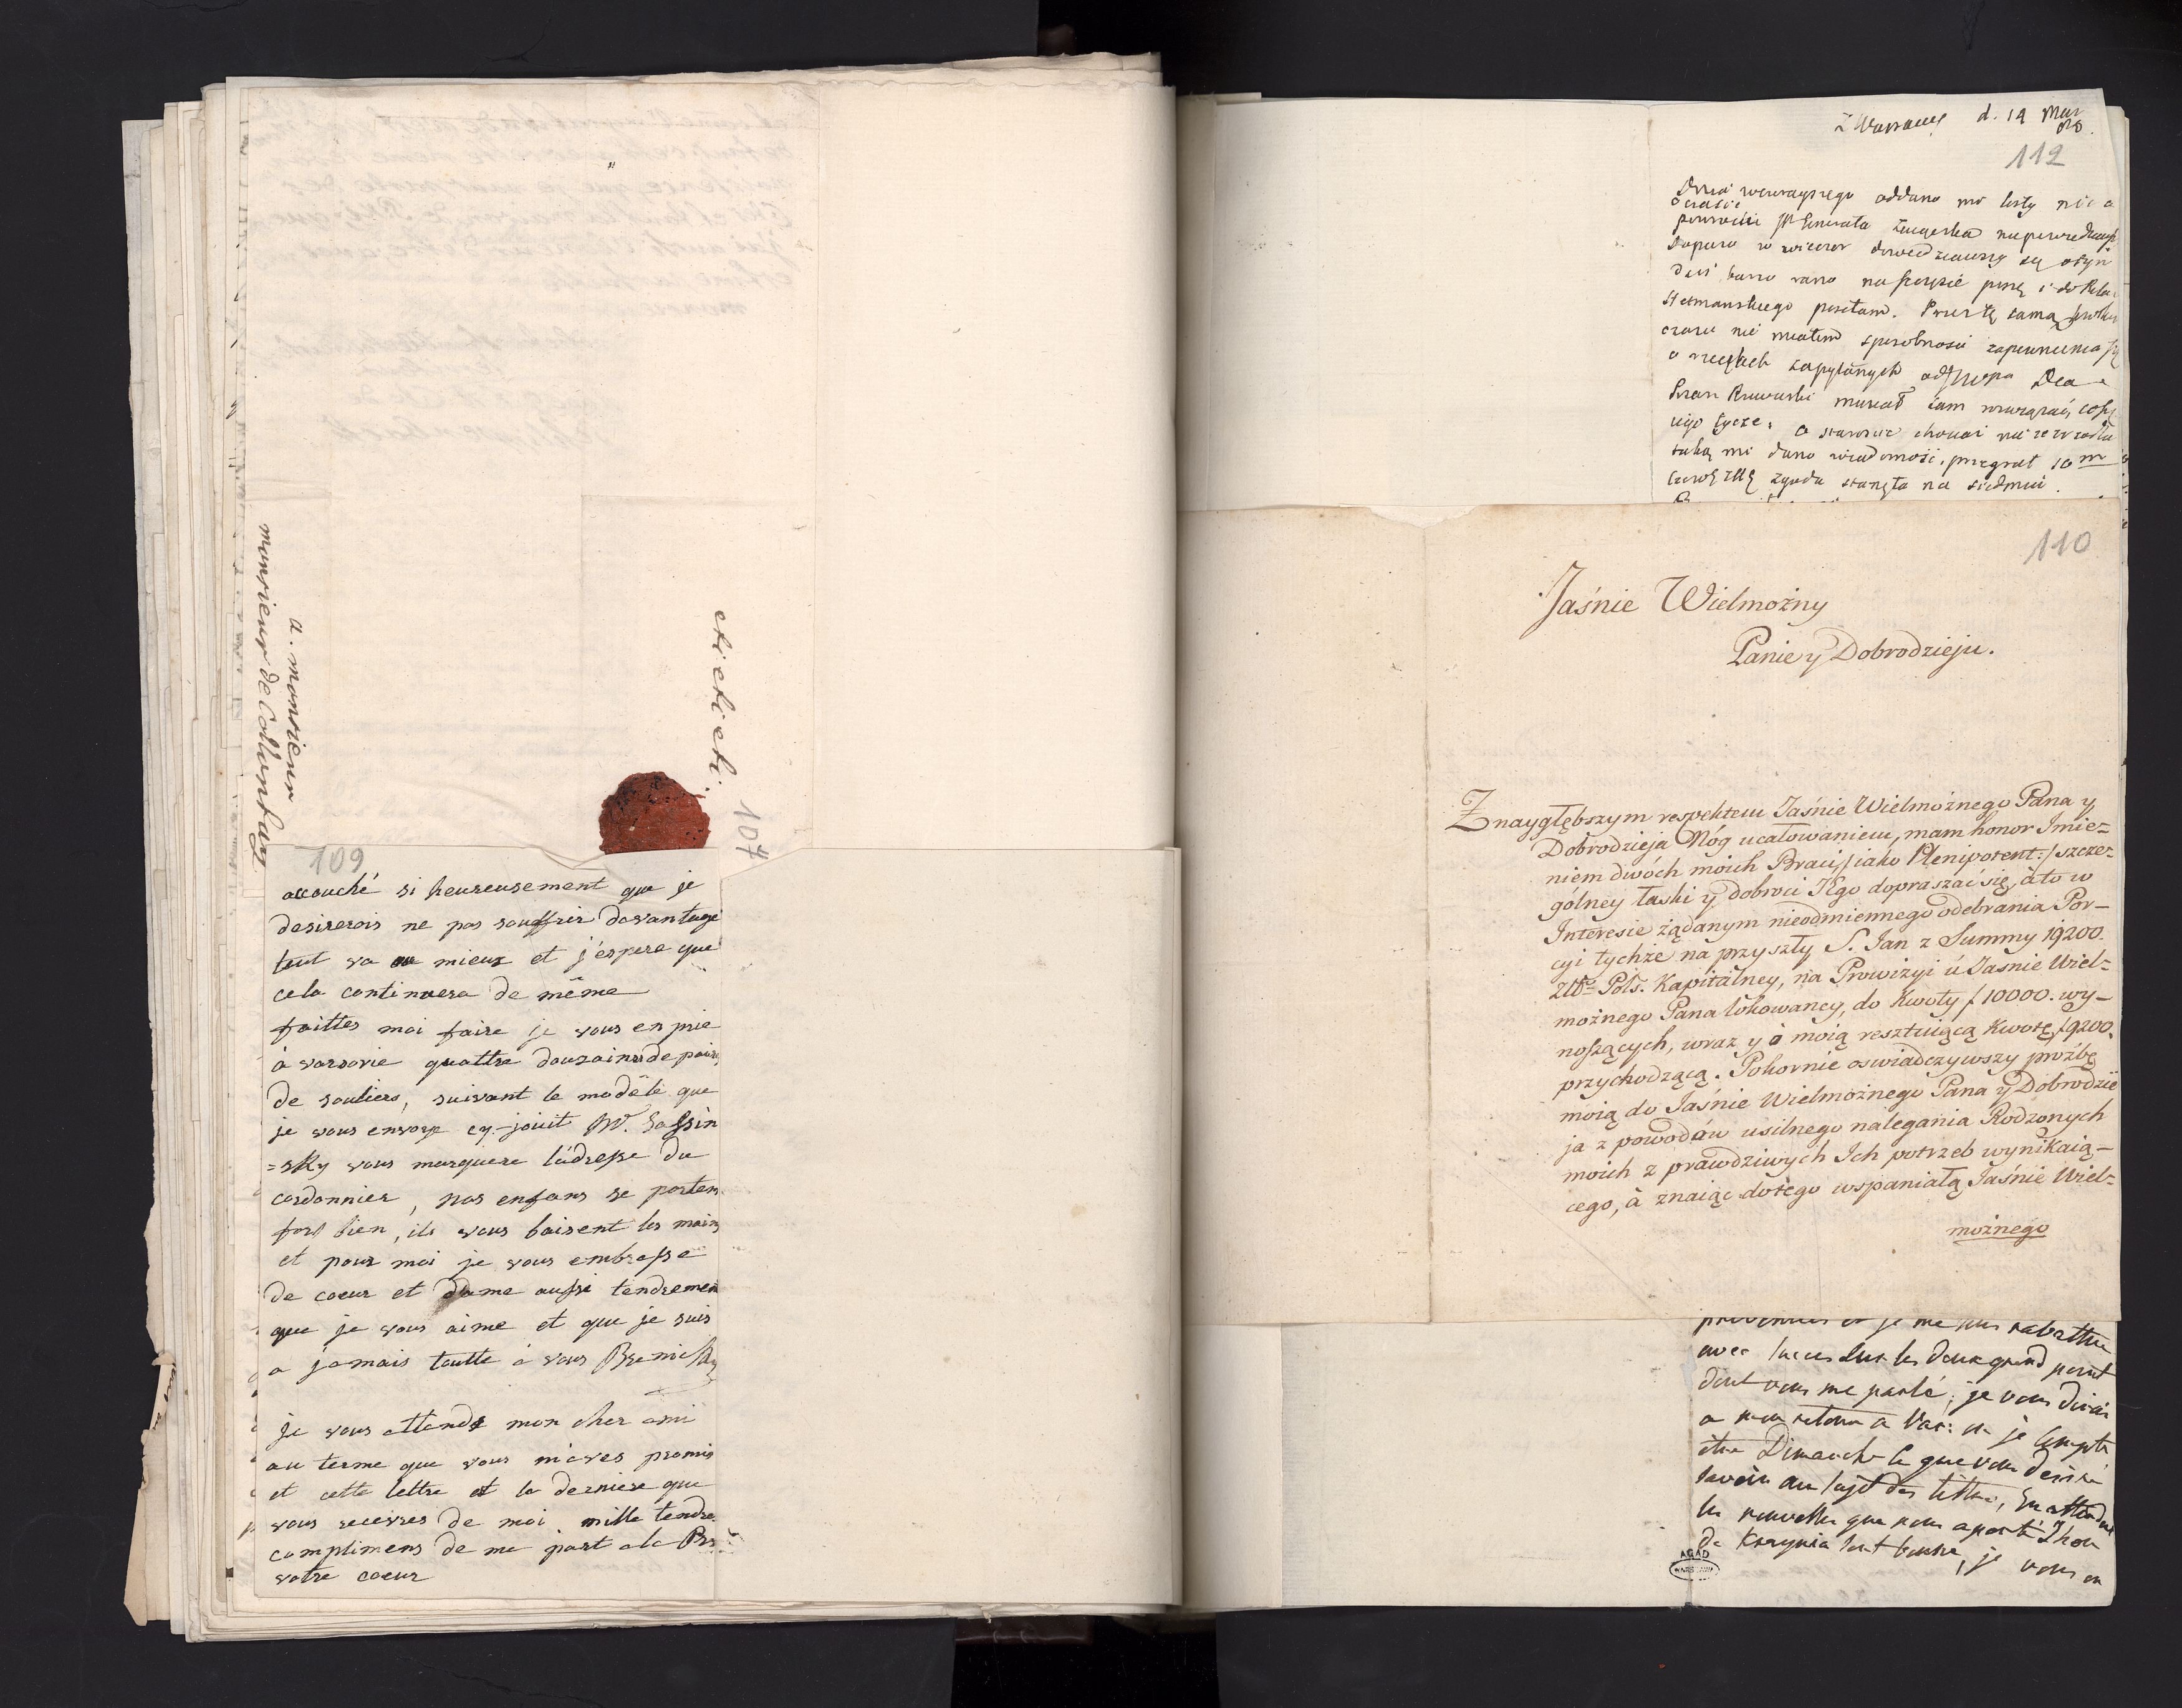 a. monsieur
monsieur de Collontay
etc etc etc.
107
109
accouché si heureusement que je
desirerois ne pas souffrir davantage
tout va au mieux et j'espere que
cela continuera de même
faittes moi faire je vous en prie
à varsovie quattre douzaines de paires
de souliers, suivant le modèle que
je vous envoye cy-joint Mr. Sassin
=sky vous marquera l'adresse du
cordonnier, nos enfans se porten
fort bien, ils vous baisent les mains
et pour moi je vous embrasse
de coeur et d'ame aussi tendremen
que je vous aime et que je suis
a jamais toutte à vous
je vous attends mon cher ami
au terme que vous m'aves promis
et cette lettre est la derniere que
vous recevres de moi mille tendre
complimens de ma part a la
votre coeur
d. 19 Mar
112
oddano mi listy
Generała
w wieczor dowiedziawszy się
dziś rano
posełam. tamą
czasu nie miałem sposobności zapewnienia
o rzeczach zapytanych od
musiał tam
iego tycze, a
taką mi dano wiadomość, przegrał 10 m
zgoda stanęła na siedmiu.
110
Jaśnie Wielmożny
Panie y Dobrodzieju.
Z naygłębszym respektem Jaśnie Wielmożnego Pana y
Dobrodzieja Nóg ucałowaniem, mam honor Imie=
niem dwóch moich Braci / iako Plenipotent: / szcze=
gólney łaski y dobroci JEgo dopraszać się, à to w
Interesie żądanym nieodmiennego odebrania Por-
cyi tychże na przyszły S. Jan z Summy 19200.
Złł= Pols. Kapitalney, na Prowizyi ú Jaśnie Wiel=
możnego Pana lokowaney, do Kwoty f 10000. wy-
noszących, wraz y ò moią resztuiącą Kwotę f 9200.
przychodzącą. Pokornie oswiadczywszy proźbę
moią do Jaśnie Wielmożnego Pana y Dobrodzie
ja z powodów usilnego nalegania Rodzonych
moich z prawdziwych Ich potrzeb wynikaią-
cego, à znaiąc do tego wspaniałą Jaśnie Wiel=
możnego
je me suis rabattue
avec succes sur les deux grand point
dont vous me parlé, je vous dirai
a mon retour a Var: ou je compte
être Dimanche ce que vous desiré
savoir au sujet des
les nouvelles que nous aporté
de sont bonne, je vous en
AGAD